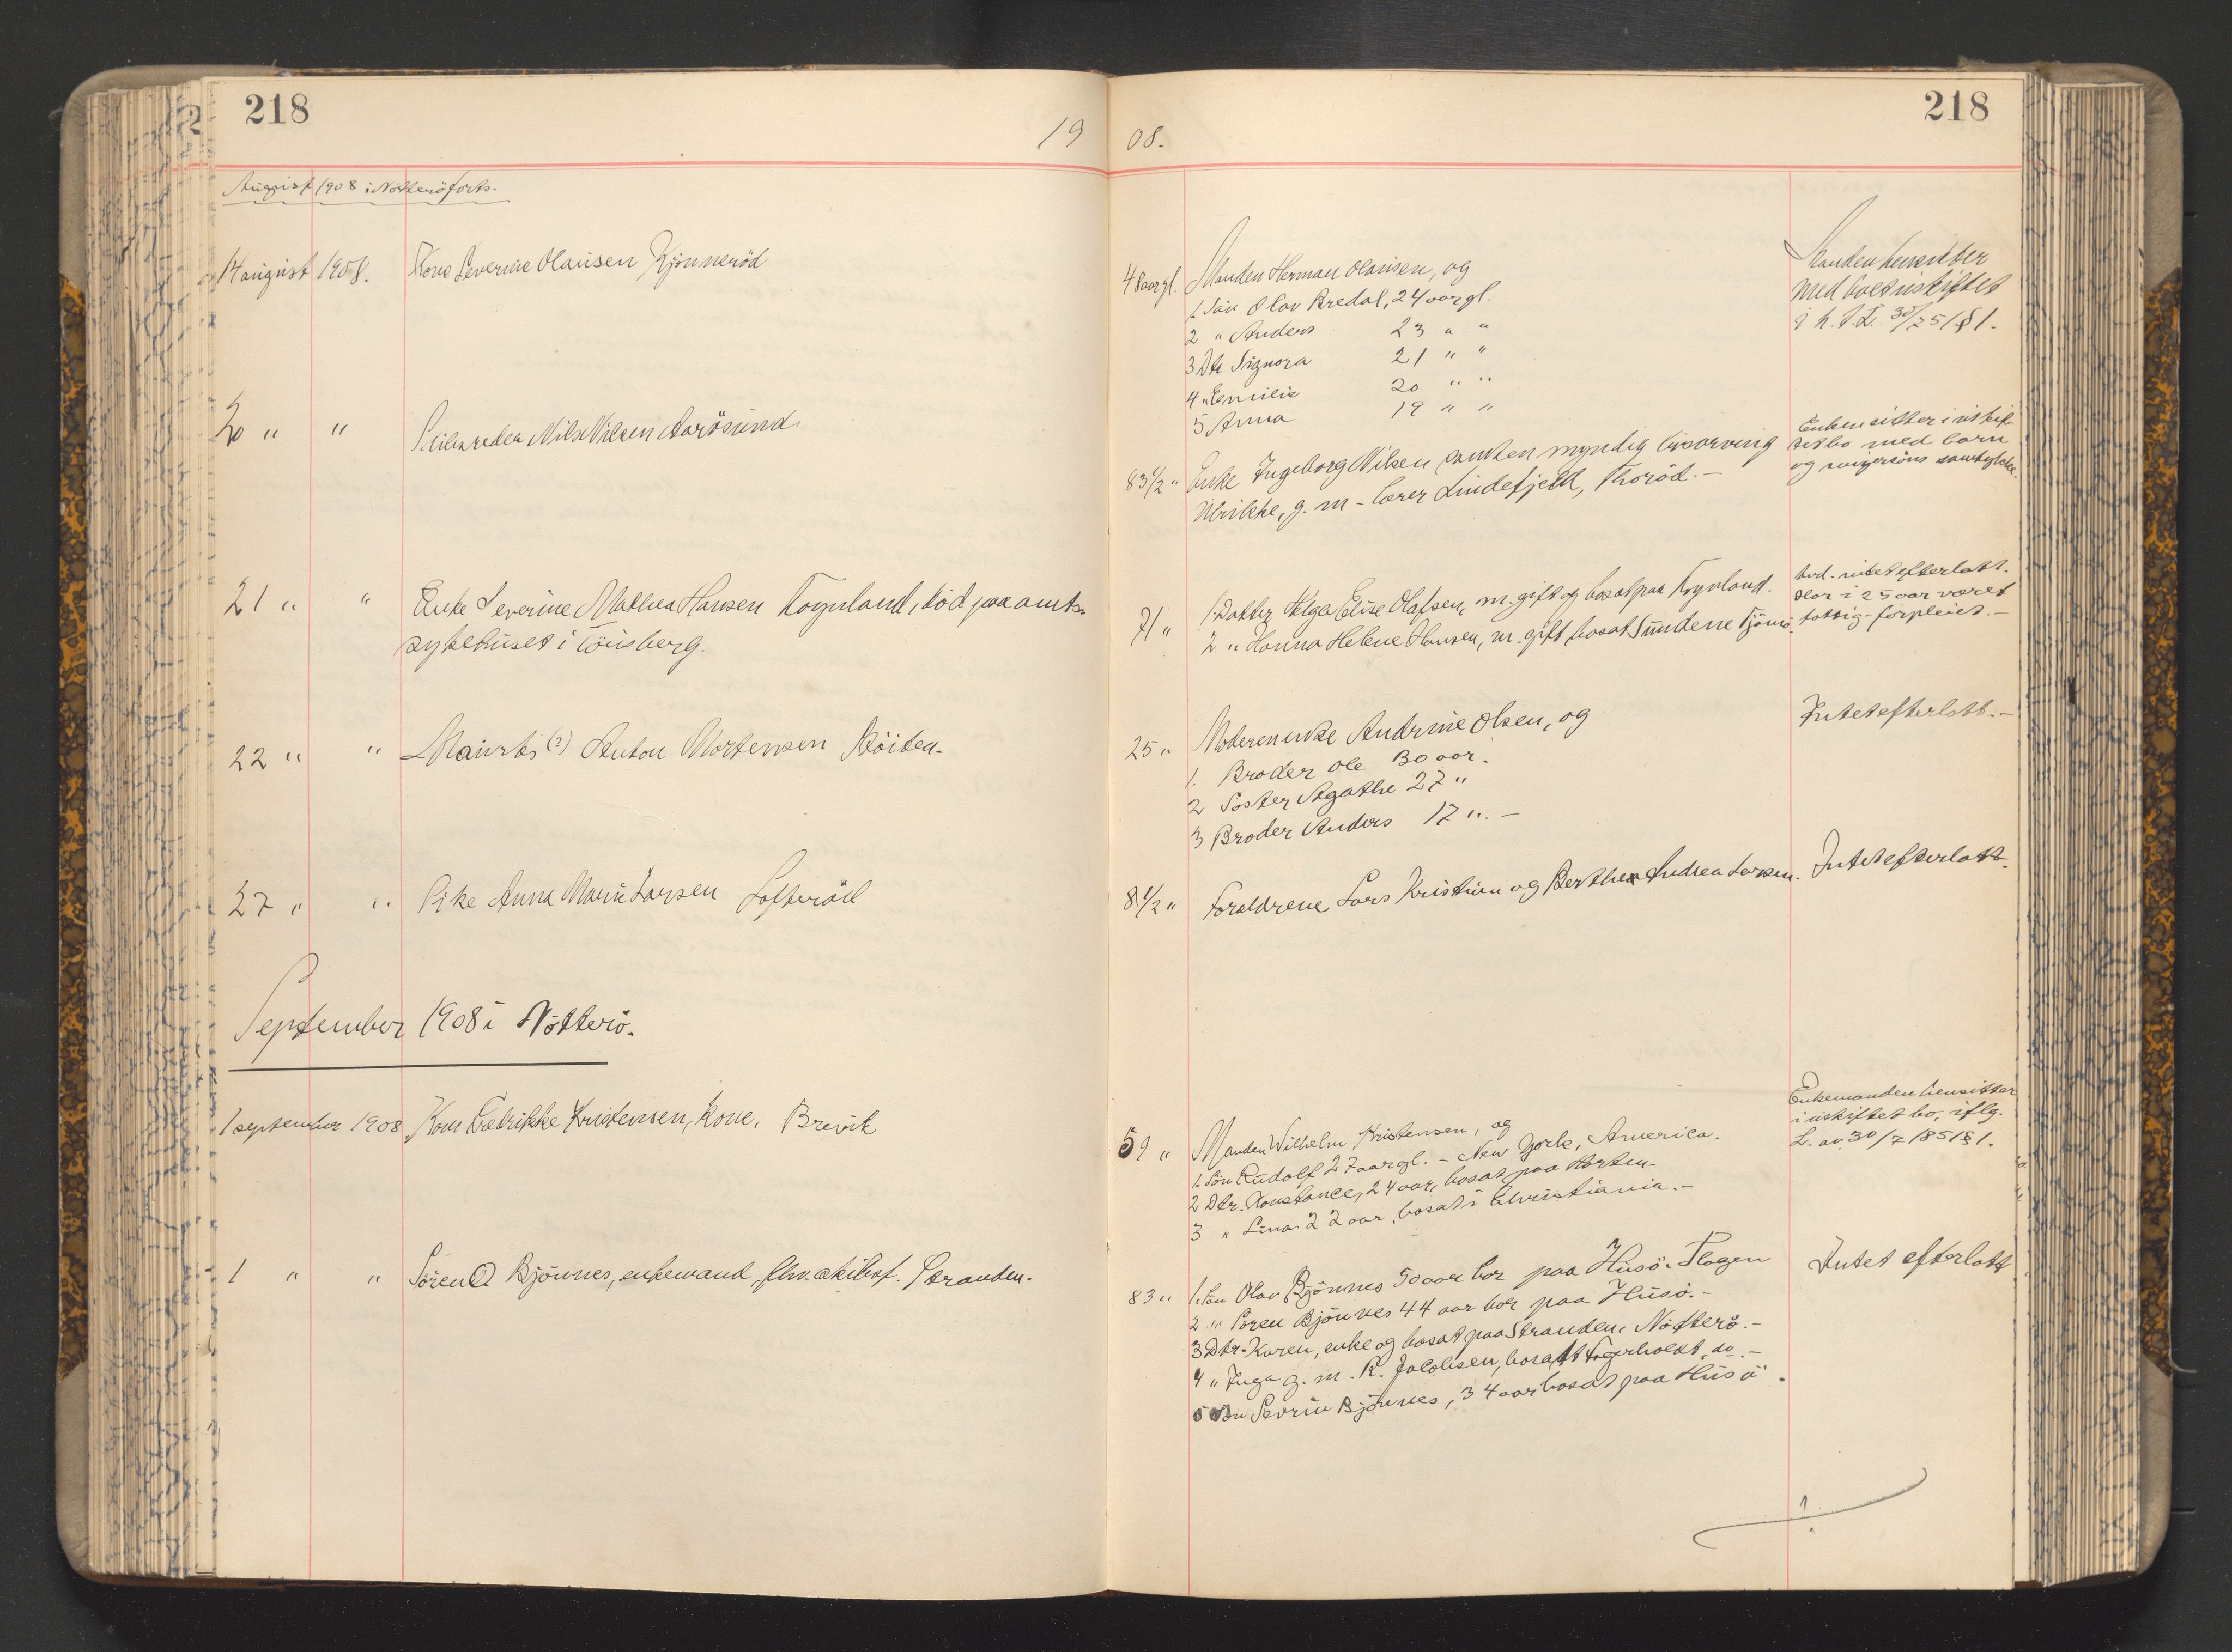 218
218
19 08.
August 1908 i Nötterö forts.
14 august 1908. Kone Severine Olausen Kjönneröd
48 aar gl. Manden Herman Olausen, og
1. Sön Olav Bredal, 24 aar gl.
2 " Anders 23 " "
3 Dtr Signora 21 " "
4 " Emilie 20 " "
5 Anna 19 " "
Manden hensitter
med boet uskiftet
30/7 51 § 1.
20 " " Nils Nilsen Aarösund
83 1/2 " Enke Ingeborg Nilsen samt en myndig livsarving
Ulrikke, g. m - lærer Lindefjeld, Thoröd. -
Enken sitter i uskif-
tet bo med barn
og svigersöns samtykke
21 " " Enke Severine Mathea Hansen Toynland, död paa amts-
sykehuset i Tönsberg.
71 " 1. Datter Helga Elise Olafsen, m. gift og bosat paa Toynland.
2 " Hanna Helene Hansen, m. gift, bosat Sundene Tjömö.
intet efterlatt.
Har i 25 aar været
fattig-forpleiet. -
22 " " Mauritz (?) Anton Mortensen Röiten.
25 " Moderen enke Andrine Olsen, og
1. Broder Ole 30 aar.
2 Söster Agathe 27 "
3 Broder Anders 17 ". -
Intet efterlatt. -
27 " " Pike Anna Marie Larsen Lofteröd
8 1/2 " Foreldrene Lars Kristian og Berthea Andrea Larsen.
Intet efterlatt.
September 1908 i Nötterö.
1 september 1908 Kone Fredrikke Kristensen, kone, Brevik
59 " Manden Wilhelm Kristensen, og
1. Sön Rudolf 27 aar gl. - New York, America.
2 Dtr. Konstance, 24 aar, bosat paa Horten.
3 " Lina 22 aar, bosat i Christiania. -
Enkemanden hensitter
i uskiftet bo, iflg.
L. av 30/7 1851 § 1.
1 " " Sören O Bjönnes, enkemand, fhv. skibsf. Stranden.
83 " 1. Sön Olav Bjönnes 50 aar bor paa Husö i Slagen
2 " Sören Bjönnes 44 aar bor paa Husö. -
3 Dtr. Karen, enke og bosat paa Stranden, Nötterö. -
4 " Inga g. m. K. Jacobsen, bosatt Fagerholdt, do. -
5 Sön Sevrin Bjönnes, 34 aar bosat paa Husö.
Intet efterlatt